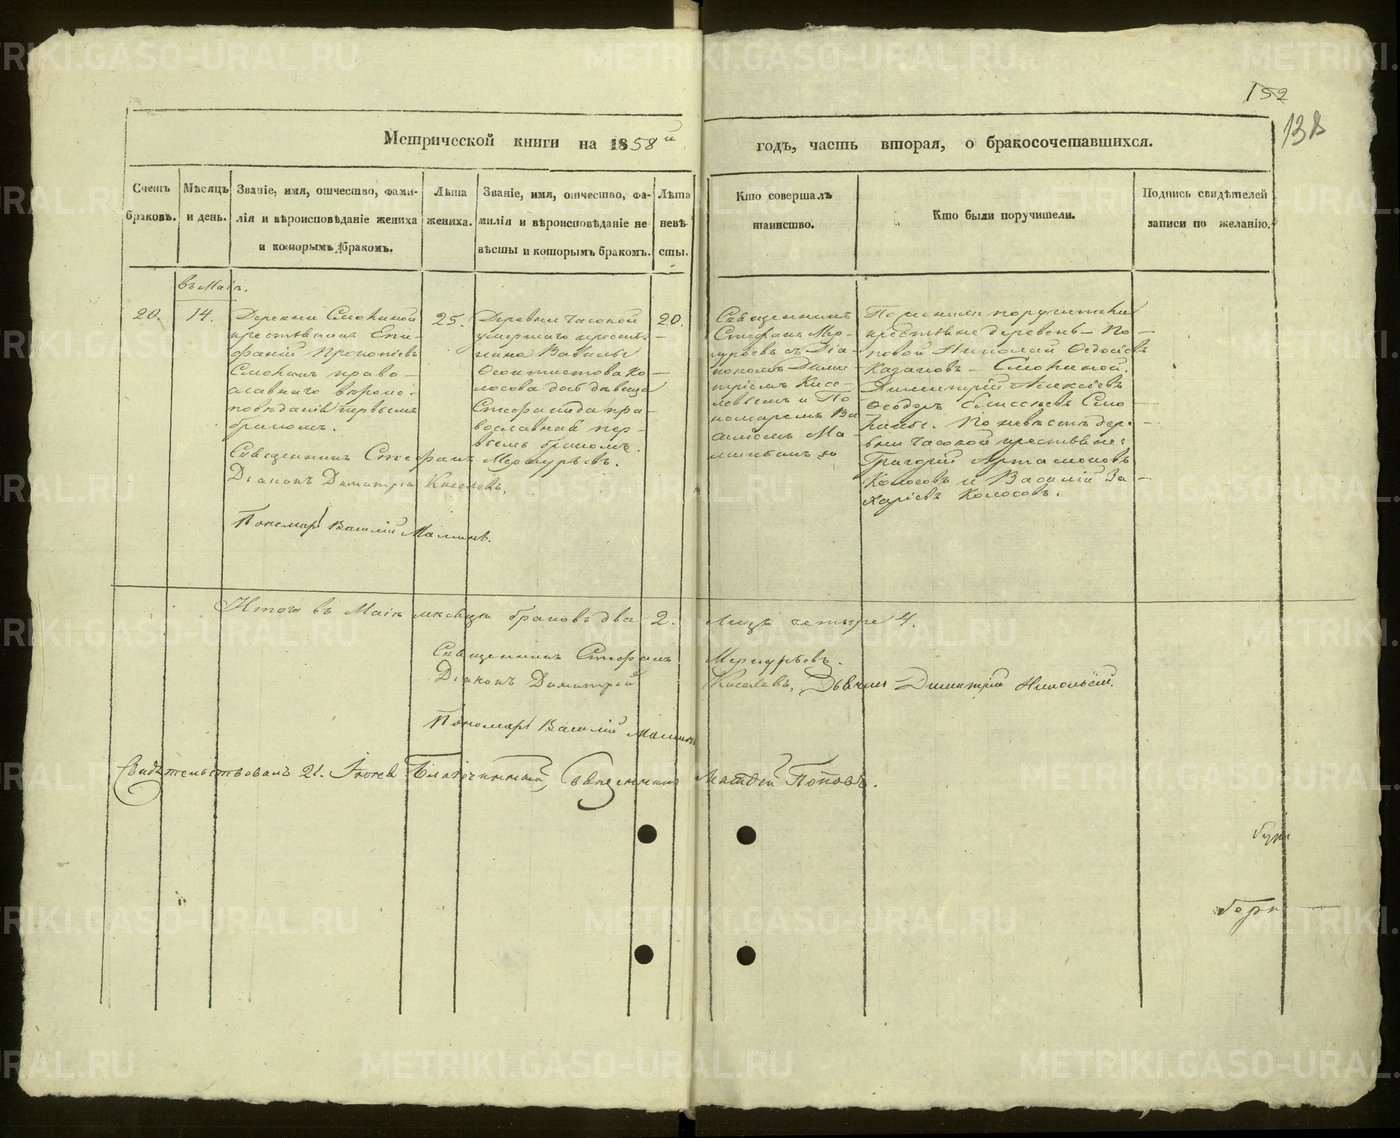 152
138
Метрической книги на 1858й годъ, часть вторая, о бракосочетавшихся.
Счетъ браковъ.
Мѣсяцъ и день.
Званіе, имя, отчество, фами-
лія и вѣроисповѣданіе жениха
и которымъ бракомъ.
Лѣта жениха.
Званіе, имя, отчество, фа-
милія и вѣроисповѣданіе не
вѣсты и которымъ бракомъ.
Лѣта невѣ сты.
Кто совершалъ
таинство.
Кто были поручители.
Подпись свидѣтелей
записи по желанію.
въ Маіѣ.
20.
14.
Деревни Смокиной
крестьянинъ Епи-
фаній Прокопіевъ
Смокинъ право-
славнаго вѣроис-
повѣданія первымъ
бракомъ.
25.
Деревни Часовой
умершаго крестья-
нина Вавилы
Колосова дочь дѣвица
Стефанида пра-
вославная пер-
вымъ бракомъ.
20.
Священникъ
Стефанъ Мер-
курьевъ съ Діа-
кономъ Дими-
тріемъ Кисе-
левымъ и По
номаремъ Ва
силіемъ Ма-
По женихѣ поручители
крестьяне деревень - По-
повой Николай Федоровъ
Казанцовъ - Смокиной.
Димитрій Алексѣевъ
Феодоръ Елисѣевъ Смо-
кины. По невѣстѣ дер-
вни Часовой крестьяне:
Григорій Артамоновъ
Колосовъ и Василій За-
харіевъ Колосовъ.
Священникъ Стефанъ Меркурьевъ.
Діаконъ Димитрій Киселевъ,
Пономарь Василій Малининъ.
Итого въ Маіѣ мѣсяцѣ браковъ два 2. Лицъ четыре 4.
Священникъ Стефанъ Меркурьевъ.
Діаконъ Димитрій Киселевъ, Дьячекъ Димитрій Никольскій.
Пономарь Василій Малининъ
Свидѣтельствовалъ 21. Іюня Благочинный, Священникъ Матфей Поповъ.
METRIKI.GASO-URAL.RU